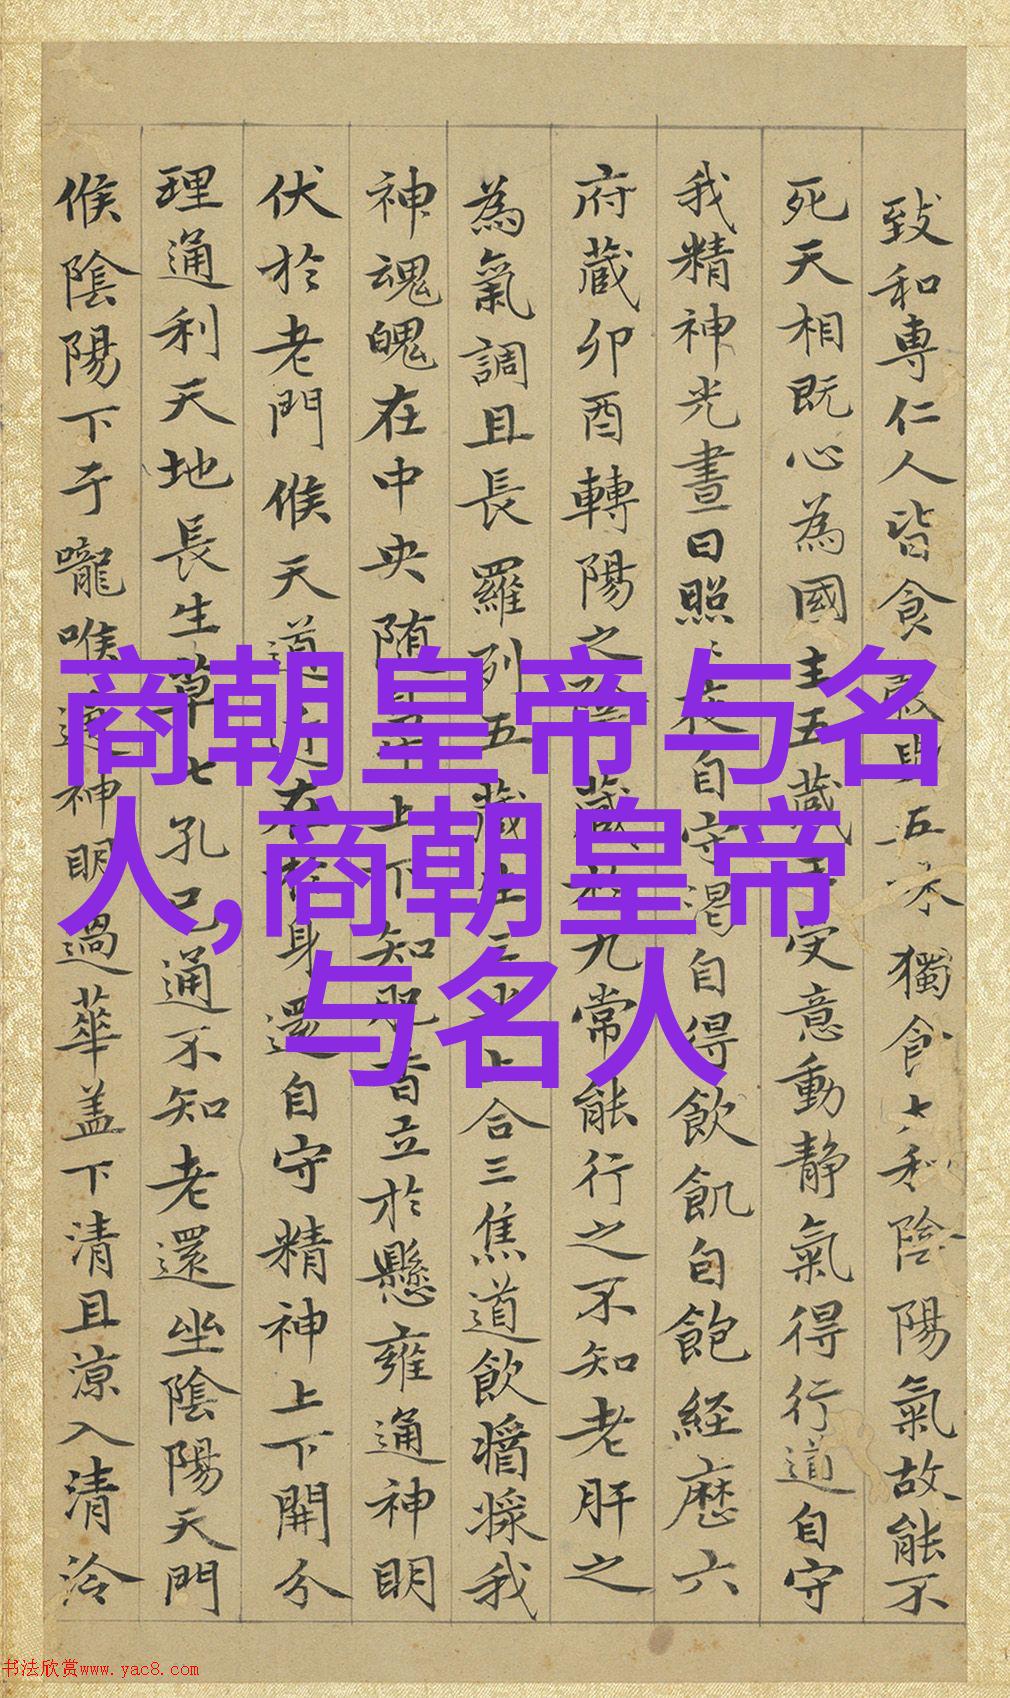 商朝皇帝与名
人,商朝皇帝
与名人
致和專仁人皆食穀與五味獨食太和陰陽氣故能不
死天相既心為國主五藏王受意動靜氣得行道自守
我精神光晝日照〻夜自守渴自得飲飢自飽經歷六
府藏卯酉轉陽之陰藏於九常能行之不知老肝之
為氣調且長羅列五藏生三光上合三焦道飲醬漿我
神魂魄在中央随鼻上下知肥香立於懸雍通神明
伏於老門候天道近在於身還自守精神上下開分
理通利天地長生草七孔已通不知老還坐陰陽天門
候陰陽下于嚨喉通神明過華盖下清且涼入清泠
书法欣赏www.yac8.com